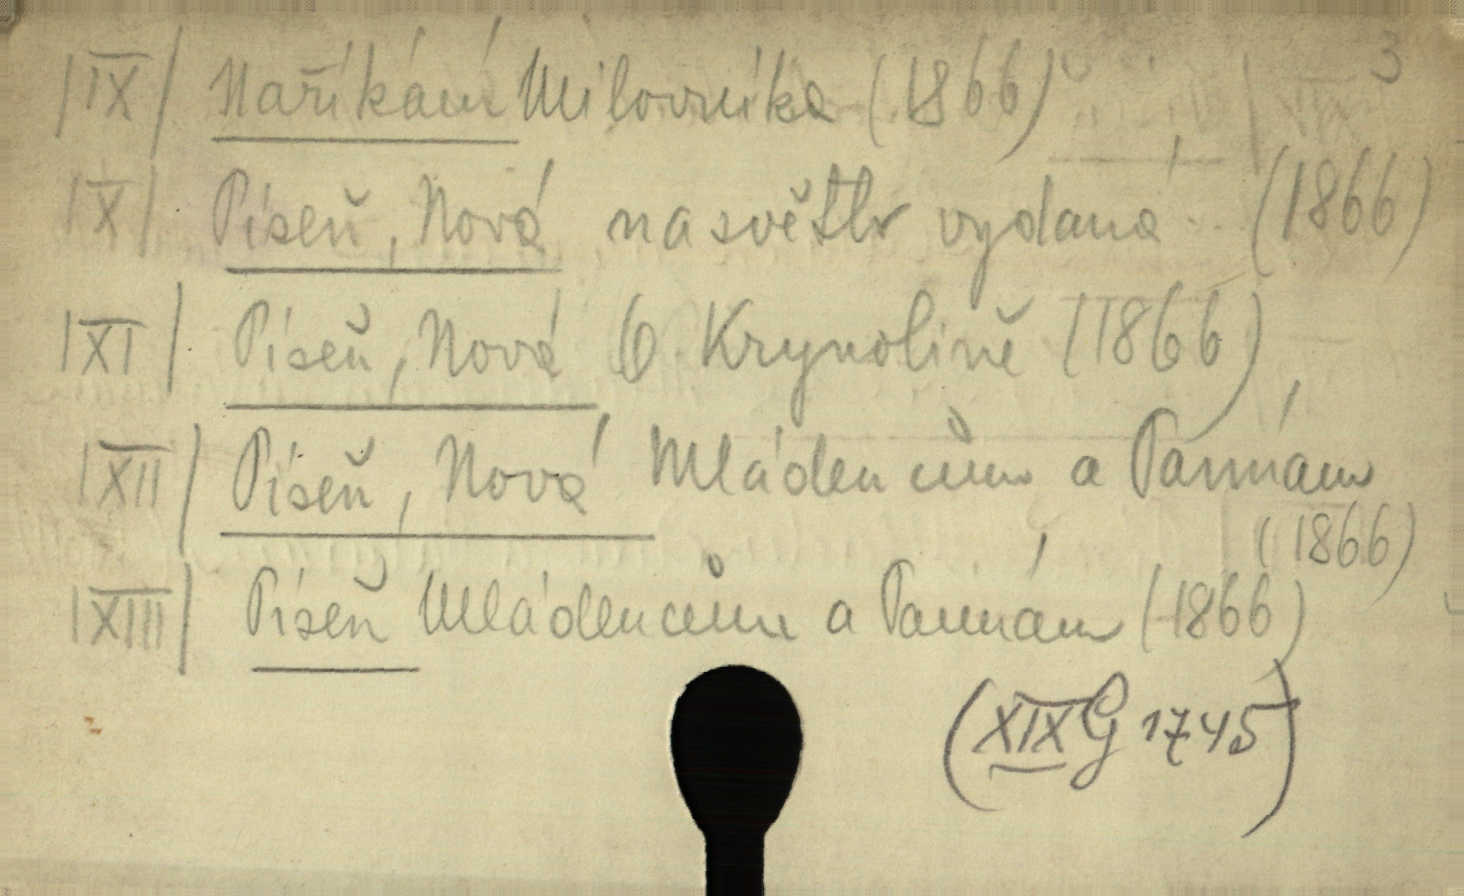 3
|IX| Naříkání Milovníka (1866)
|X| Píseň, Nová na světlo vydaná (1866)
|XI| Píseň, Nová O Krynolině (1866)
|XII| Píseň, Nová Mládencům a Pannám
(1866)
|XIII| Píseň Mládencům a Pannám (1866)
(XIX G 1745)